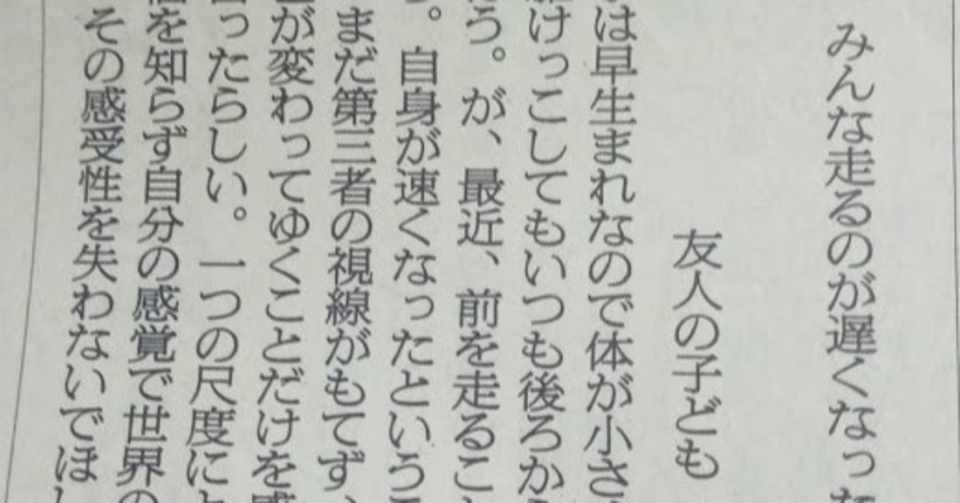 みんな走るのが遅くなった
友人の子ども
は早生まれなので体が小さ
駆けっこしてもいつも後ろから
う。が、最近、前を走るこ
。自身が速くなったという
まだ第三者の視線がもてず、
が変わってゆくことだけを感
ったらしい。一つの尺度に
を知らず自分の感覚で世界の
その感受性を失わないでほし